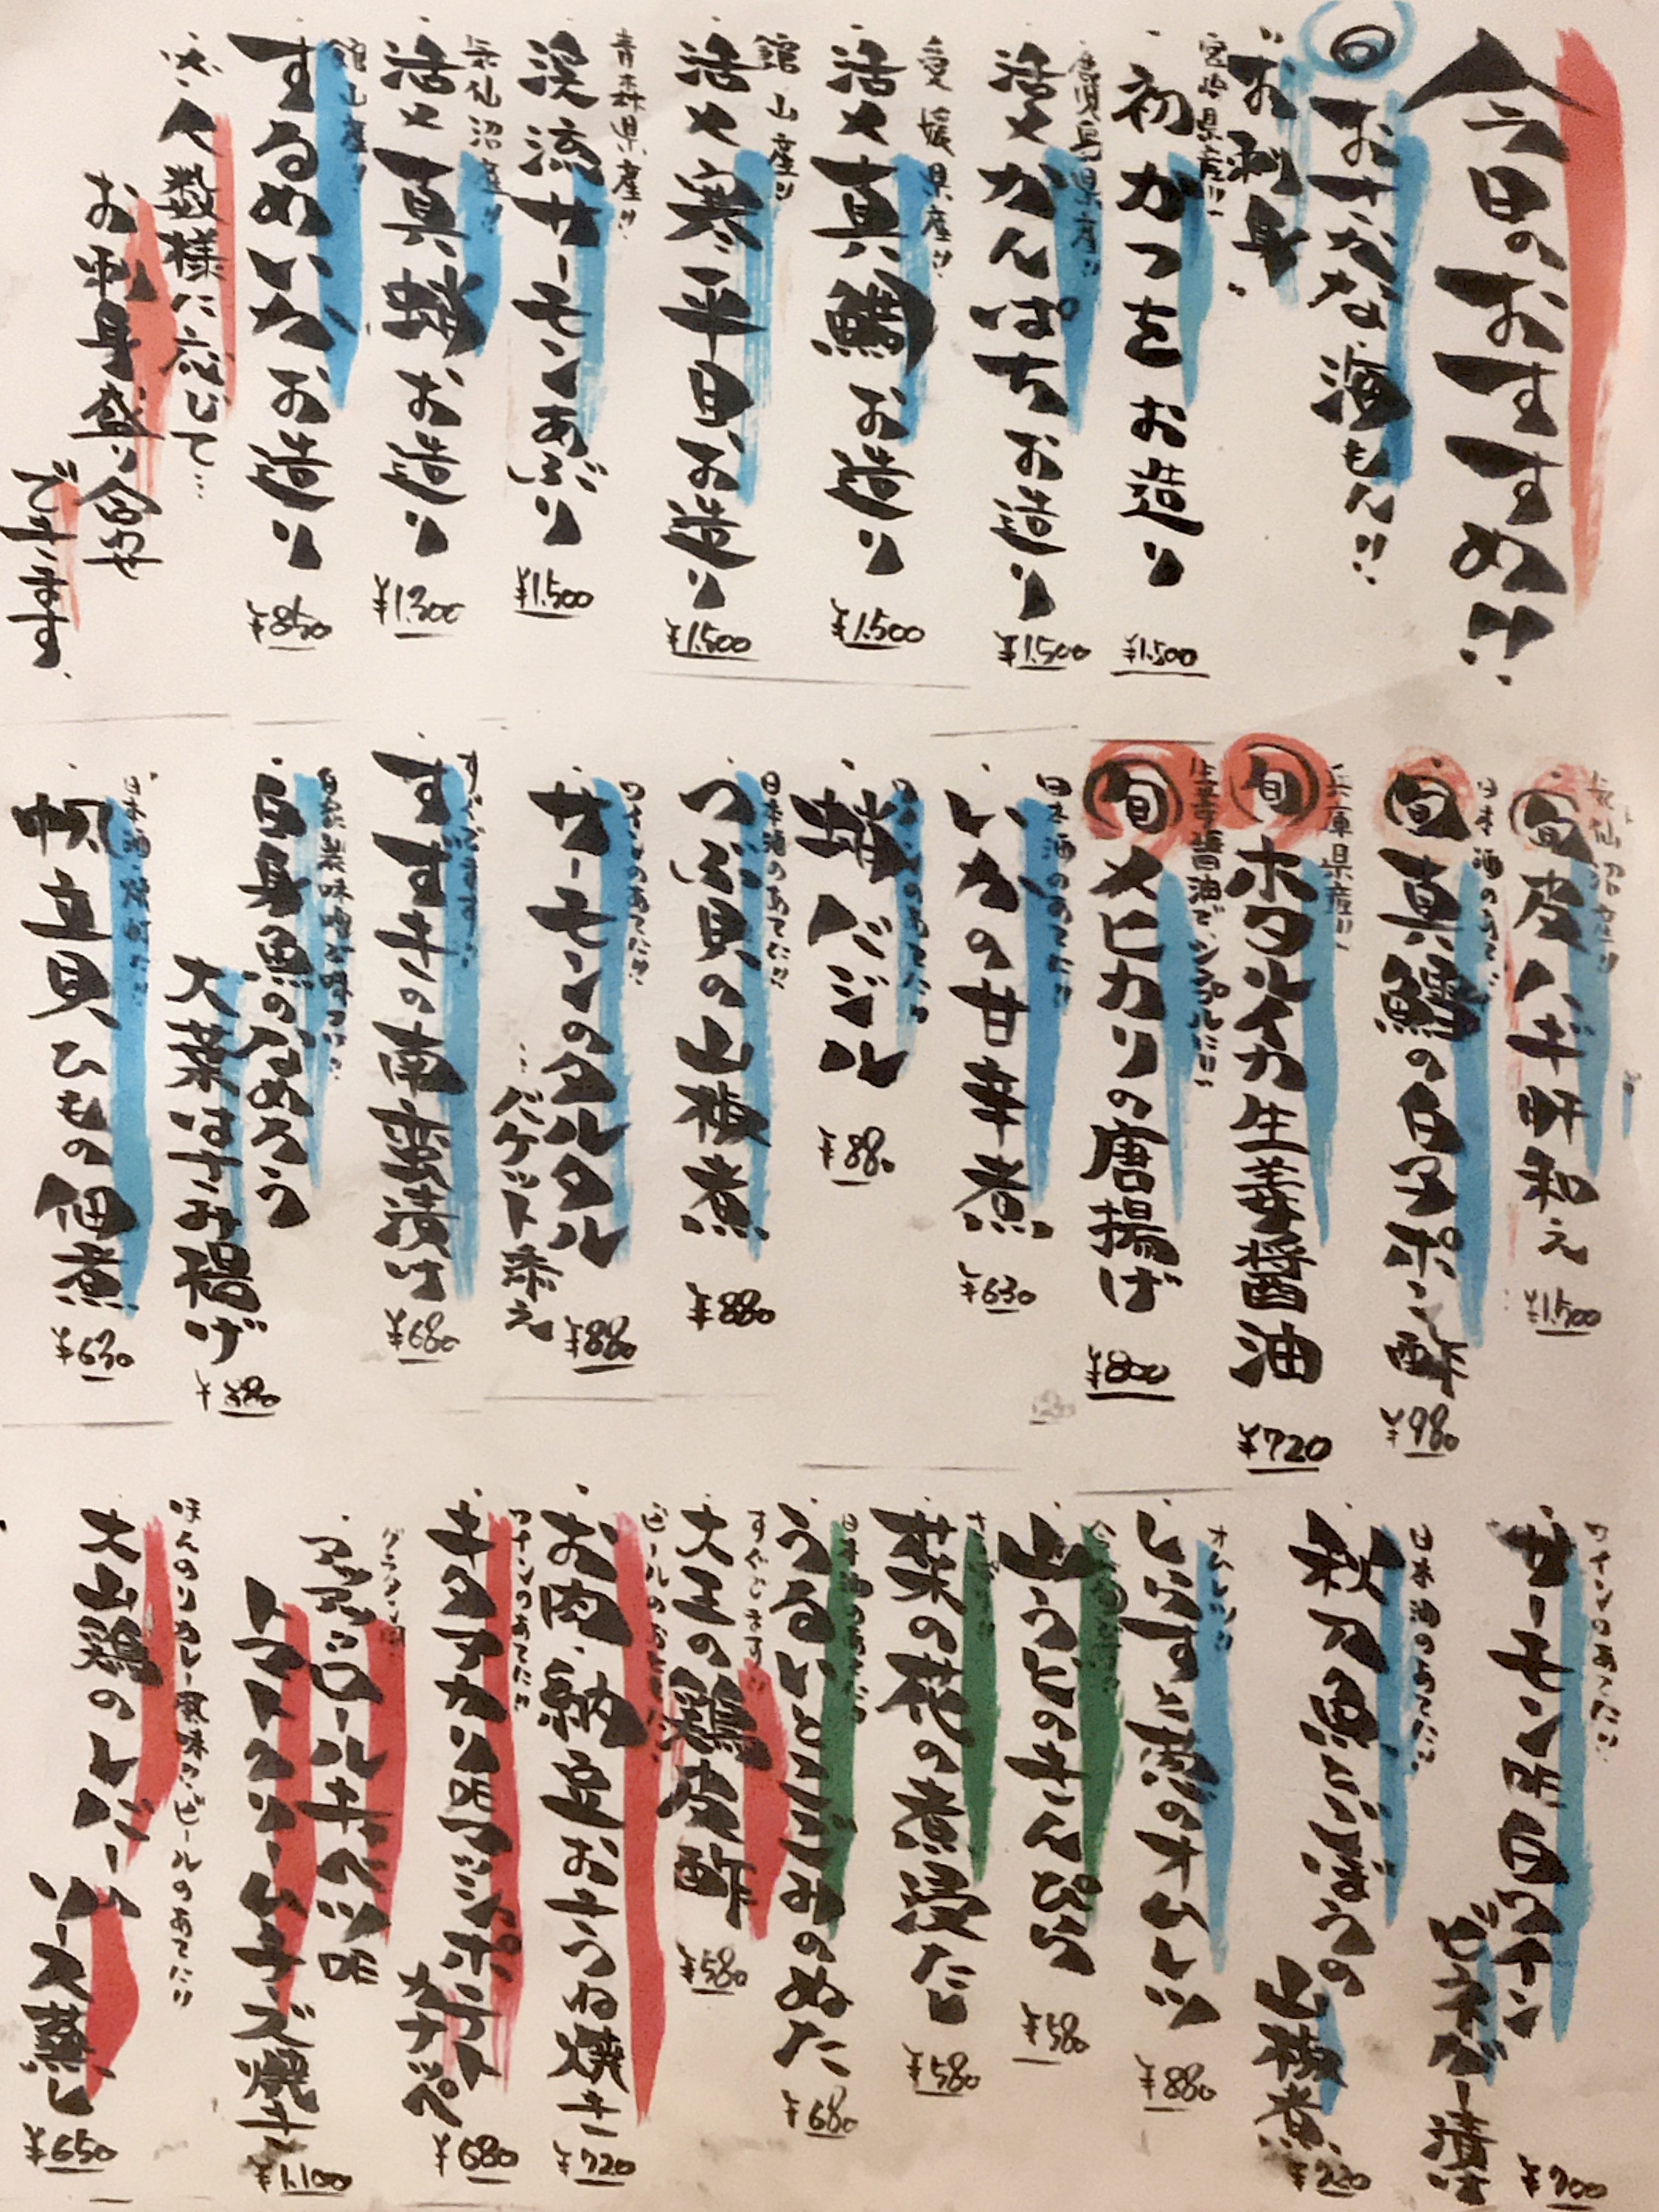 今日のおすすめ!!
旬おさかな海もん!!
お刺身
宮崎県産!!
初かつをお造り
¥1,500
鹿児島県産!!
活〆かんぱちお造り
¥1,500
愛媛県産!!
活〆真鯛お造り
¥1,500
館山産!!
活〆寒平目お造り
¥1,500
青森県産!!
渓流サーモンあぶり
¥1,500
気仙沼産!!
活〆真蛸お造り
¥1,300
館山産!!
するめいかお造り
¥850
人数様に応じて…
お刺身盛り合わせ
できます
気仙沼産!!
旬皮ハギ肝和え
¥1,500
日本酒のあてに!!
旬真鱈の白子ポン酢
¥980
兵庫県産!!
旬ホタルイカ生姜醤油
¥720
生姜醤油でシンプルに!!
旬メヒカリの唐揚げ
¥800
日本酒のあてに!!
いかの甘辛煮
¥630
蛸バジル
¥880
日本酒のあてに!!
つぶ貝の山椒煮
¥880
ワインのあてに!!
サーモンのタルタル
…バケット添え
¥880
すすきの南蛮漬け
¥680
白身魚のなめろう
大葉はさみ揚げ
帆立貝ひもの佃煮
¥630
ワインのあてに!!
サーモン昆白ワイン
ビネガー漬け
¥700
日本酒のあてに!!
秋刀魚ごぼうの
山椒煮
¥720
オムレツ!!
しらすと葱のオムレツ
¥880
山うどのきんぴら
¥580
菜の花の煮浸たし
¥580
うるいとこごみのぬた
¥680
すっぱうま!!
大王の鶏皮酢
¥580
お肉、納豆おきつね焼き
¥720
ワインのあてに!!
キタアカリ昆アンショポテト
カナッペ
¥680
グラタン風
ロールキャベツ
トマトクリームチーズ焼き
¥1,100
ほんのりカレー風味!!ビールのあてに!!
大山鶏のレバー
ソース蒸し
¥650